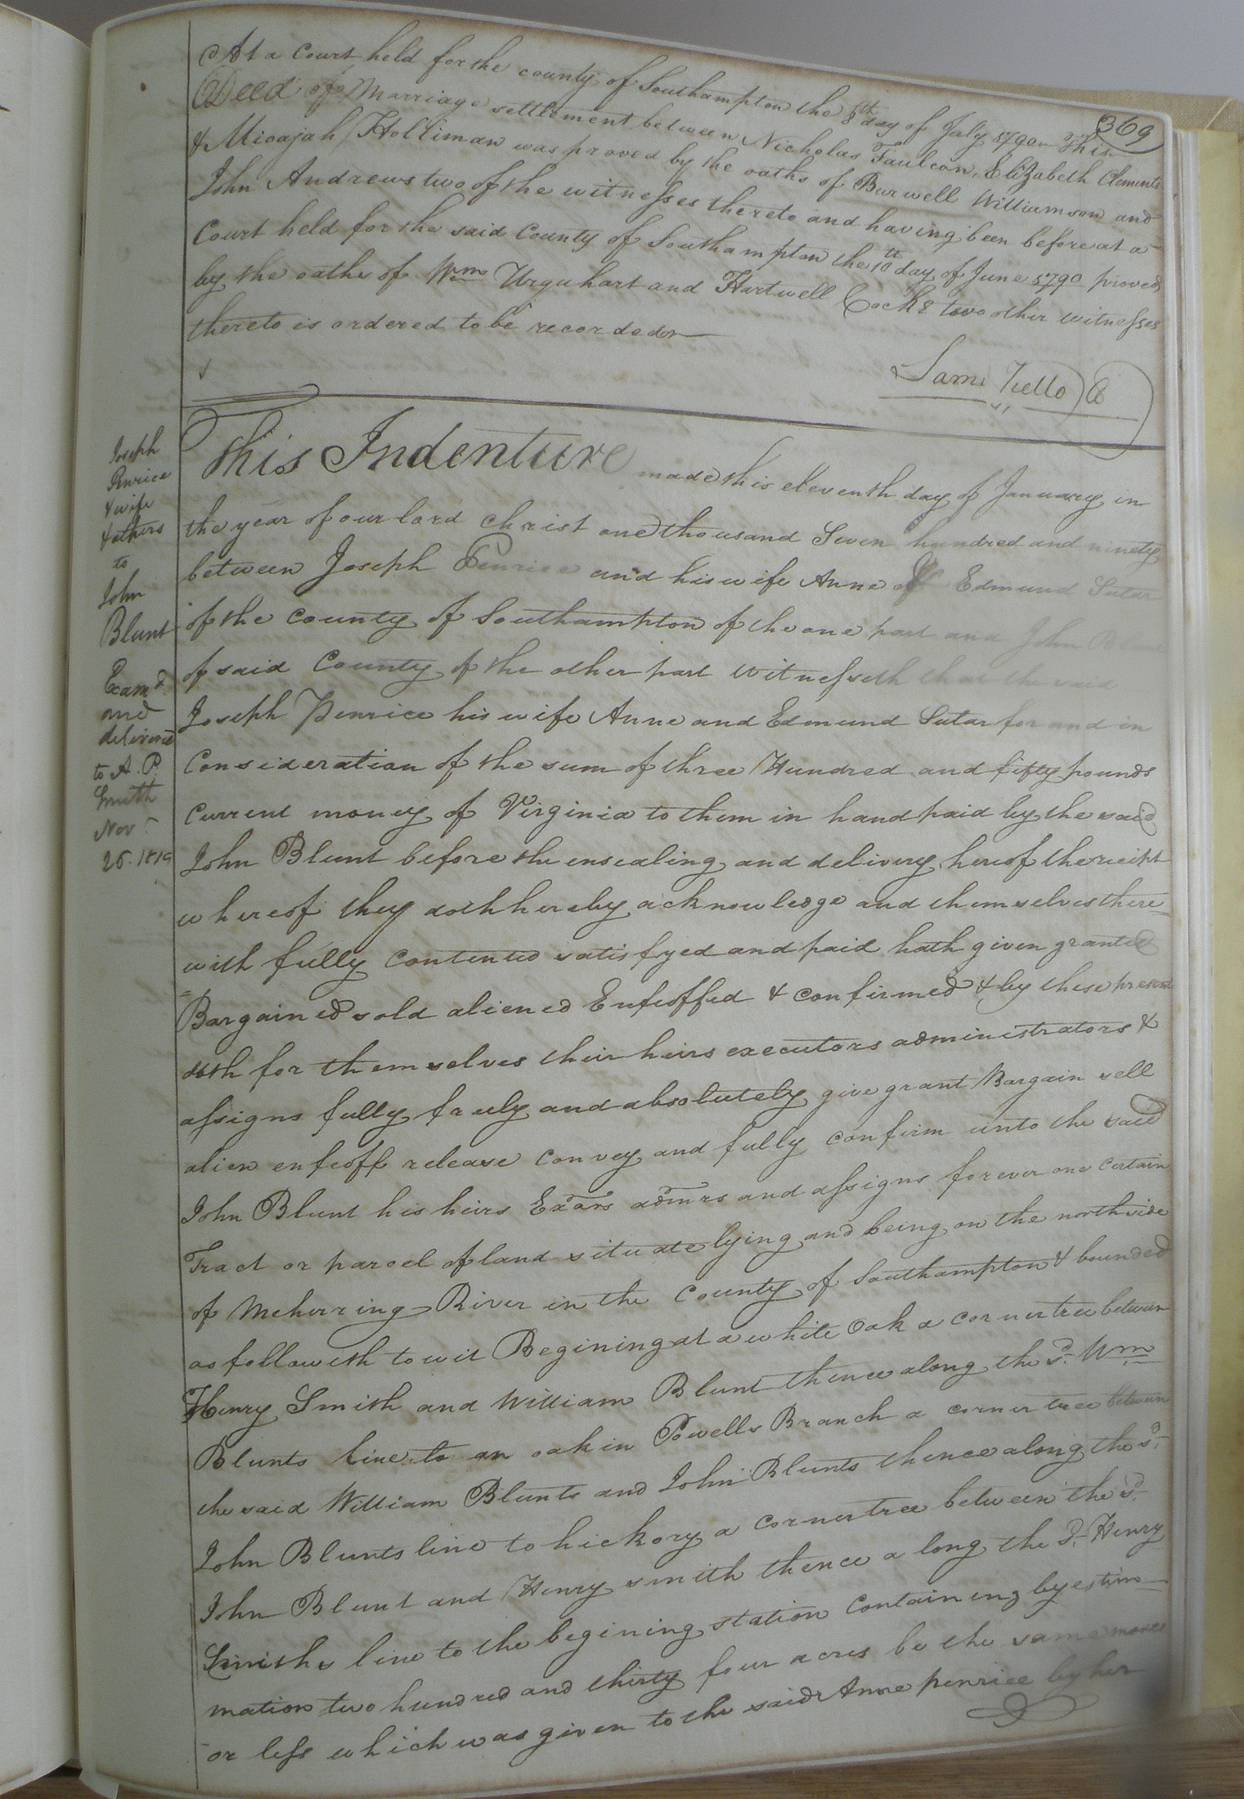 369
At a Court held for the county of Southampton the 8th day of July 1790 This
Deed of Marriage settlement between Nicholas Faulcon, Elizabeth Clements
& Micajah Holliman was proved by the oaths of Burwell Williamson and
John Andrews two of the witnesses thereto and having been before at a
Court held for the said County of Southampton the 10th day of June 1790 proved
by the oaths of Wm Urquhart and Hartwell Cocke two other witnesses
thereto is ordered to be recorded
Joseph
Penrice
& wife
& others
to
John
Blunt
Exam.d
and
delivered
to A. P.
Smith
Nov.r
26. 1819
This Indenture made this eleventh day of January in
the year of our lord Christ one thousand Seven hundred and ninety
between Joseph Penrice and his wife Anne & Edmund Sutar
of the county of Southampton of the one part and John Blunt
of said County of the other part Witnesseth that the said
Joseph Penrice his wife Anne and Edmund Sutar for and in
Consideration of the sum of three Hundred and fifty pounds
current money of Virginia to them in hand paid by the said
John Blunt before the ensealing and delivery hereof the reciept
whereof they doth hereby acknowledge and themselves there
with fully contented satisfyed and paid hath given granted
Bargained sold aliened Enfeoffed & confirmed & by these present
doth for themselves their heirs executors administrators &
assigns fully truly and absolutely give grant Bargain sell
alien enfeoff release convey and fully confirm unto the said
John Blunt his heirs Exors admrs and assigns forever one certain
Tract or parcel of land situate lying and being on the north side
of Meherring River in the County of Southampton & bounded
as followeth to wit Begining at a white oak a corner tree between
Henry Smith and William Blunt thence along the sd. Wm
Blunts line to an oak in Powells Branch a corner tree between
the said William Blunts and John Blunts thence along the sd.
John Blunts line to hickory a corner tree between the sd.
John Blunt and Henry smith thence a long the sd. Henry
Smiths line to the begining station containing by estim
mation two hundred and thirty four acres be the same more
or less which was given to the said Anne penrice by her